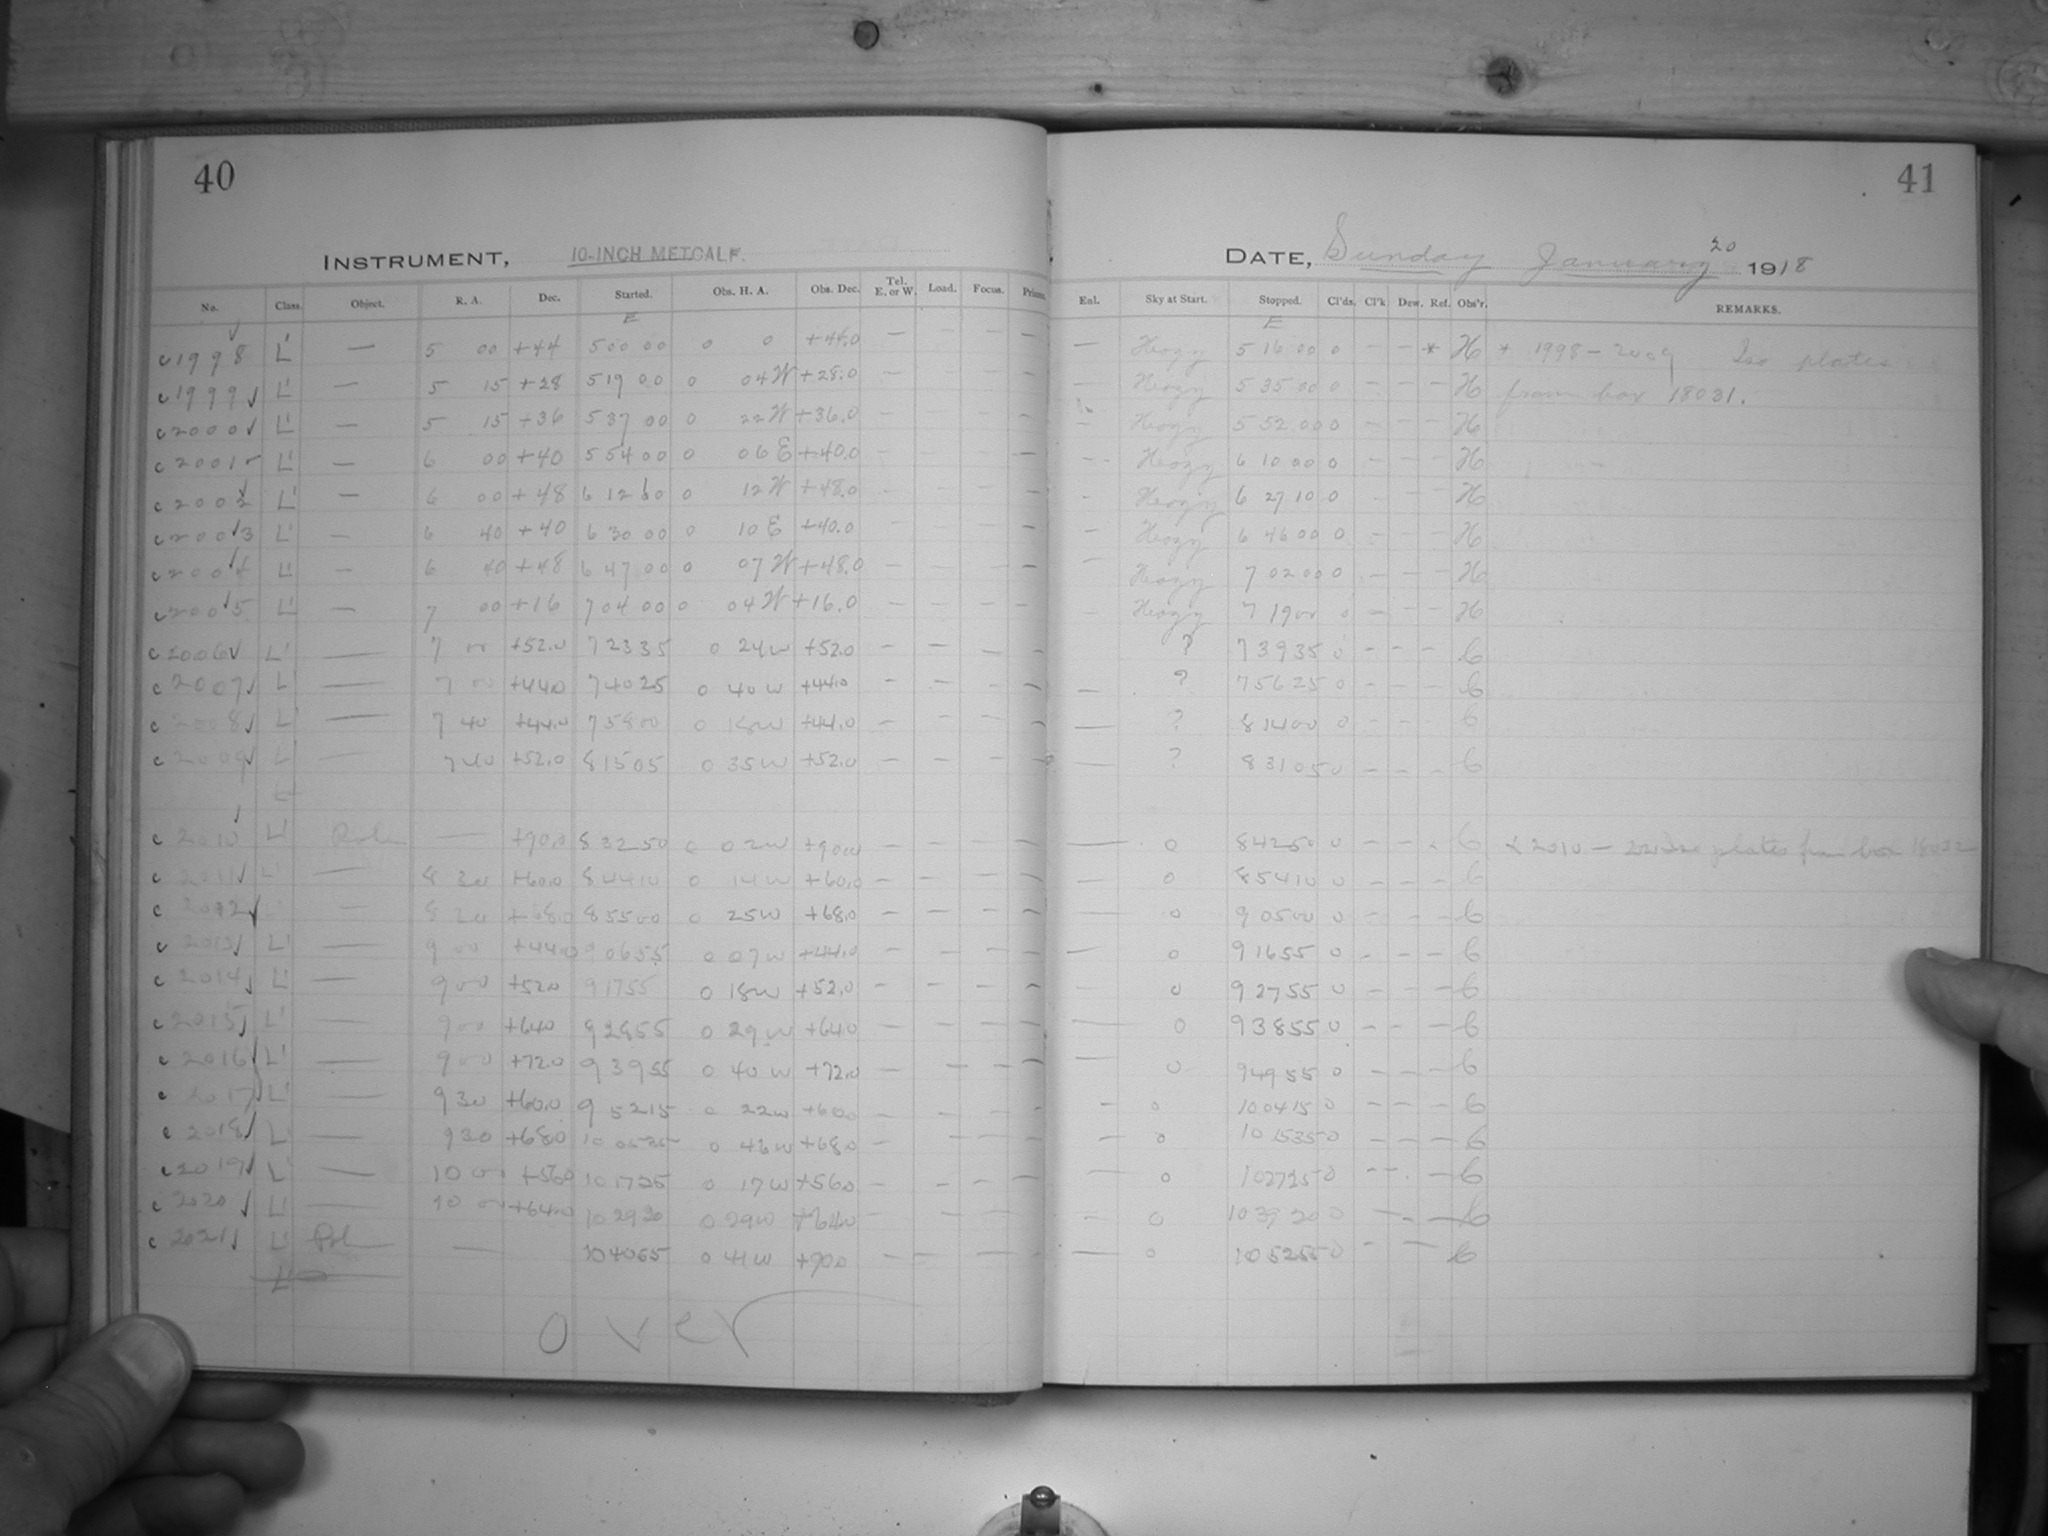 40
INSTRUMENT, 10-INCH METCALF.
No. Class. Object. R. A. Dec. Started. Obs. H. A. Obs. Dec. Tel. E. or W. Load. Focus. Prism.
E
c 1998 L' — 5 00 +44 5 00 00 0 0 +44.0 — — — —
c 1999 L' — 5 15 +28 5 19 00 0 04 W +28.0 — — — —
c 2000 L' — 5 15 +36 5 37 00 0 22 W +36.0 — — — —
c 2001 L' — 6 00 +40 5 54 00 0 06 E +40.0 — — — —
c 2002 L' — 6 00 +48 6 12 10 0 12 W +48.0 — — — —
c 2003 L' — 6 40 +40 6 30 00 0 10 E +40.0 — — — —
c 2004 L' — 6 40 +48 6 47 00 0 07 W +48.0 — — — —
c 2005 L' — 7 00 +16 7 04 00 0 04 W +16.0 — — — —
c 2006 L' — 7 00 +52.0 7 23 35 0 24 W +52.0 — — — —
c 2007 L' — 7 00 +44.0 7 40 25 0 40 W +44.0 — — — —
c 2008 L' — 7 40 +44.0 7 58 00 0 18 W +44.0 — — — —
c 2009 L' — 7 40 +52.0 8 15 05 0 35 W +52.0 — — — —
L'
c 2010 L' Pole — +90.0 8 32 50 0 02 W +90.0 — — — —
c 2011 L' — 8 30 +60.0 8 44 10 0 14 W +60.0 — — — —
c 2012 — +68.0 8 55 00 0 25 W +68.0 — — — —
c 2013 L' — 9 00 +44.0 9 06 55 0 07 W +44.0 — — — —
c 2014 L' — 9 00 +52.0 9 17 55 0 18 W +52.0 — — — —
c 2015 L' — 9 00 +64.0 9 28 55 0 29 W +64.0 — — — —
c 2016 L' — 9 00 +72.0 9 39 55 0 40 W +72.0 — — — —
c 2017 L' — 9 30 +60.0 9 52 15 0 22 W +60.0 — — — —
c 2018 L' — 9 30 +68.0 0 46 W +68.0 — — — —
c 2019 L' — 10 00 +56.0 10 17 25 0 17 W +56.0 — — — —
c 2020 L' — 10 00 +64.0 10 29 20 0 29 W +64.0 — — — —
c 2021 L' Pole — 10 40 55 0 41 W +90.0 — — — —
L'
over
41
DATE, Sunday January 20 1918
Enl. Sky at Start. Stopped. Cl'ds. Cl'k Dew. Ref. Obs'r. REMARKS.
E
— Heazy 5 16 00 0 — — * H * 1998 – 2009 Iso plates
— Heazy 5 35 00 0 — — — H from box 18031.
— Heazy 5 52 00 0 — — — H
— Heazy 6 10 00 0 — — — H
— Heazy 6 27 10 0 — — — H
— Heazy 6 46 00 0 — — — H
— Heazy 7 02 00 0 — — — H
— Heazy 7 19 00 0 — — — H
? 7 39 35 0 — — — C
— ? 7 56 25 0 — — — C
— ? 8 14 00 0 — — — C
— ? 8 31 05 0 — — — C
— 0 8 42 50 0 — — C 2010 – Iso plates from box
— 0 8 54 10 0 — — — C
— 0 9 05 00 0 — — — C
— 0 9 16 55 0 — — — C
— 0 9 27 55 0 — — — C
— 0 9 38 55 0 — — — C
— 0 9 49 55 0 — — — C
— 0 10 04 15 0 — — — C
— 0 10 15 35 0 — — — C
— 0 10 27 25 0 — — — C
— 0 10 39 20 0 — — — C
— 0 10 52 55 0 — — — C